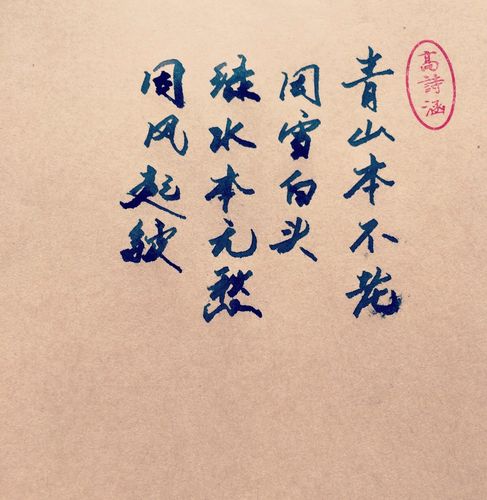 高詩涵
青山本不老
因雪白头
绿水本无愁
因风起皱